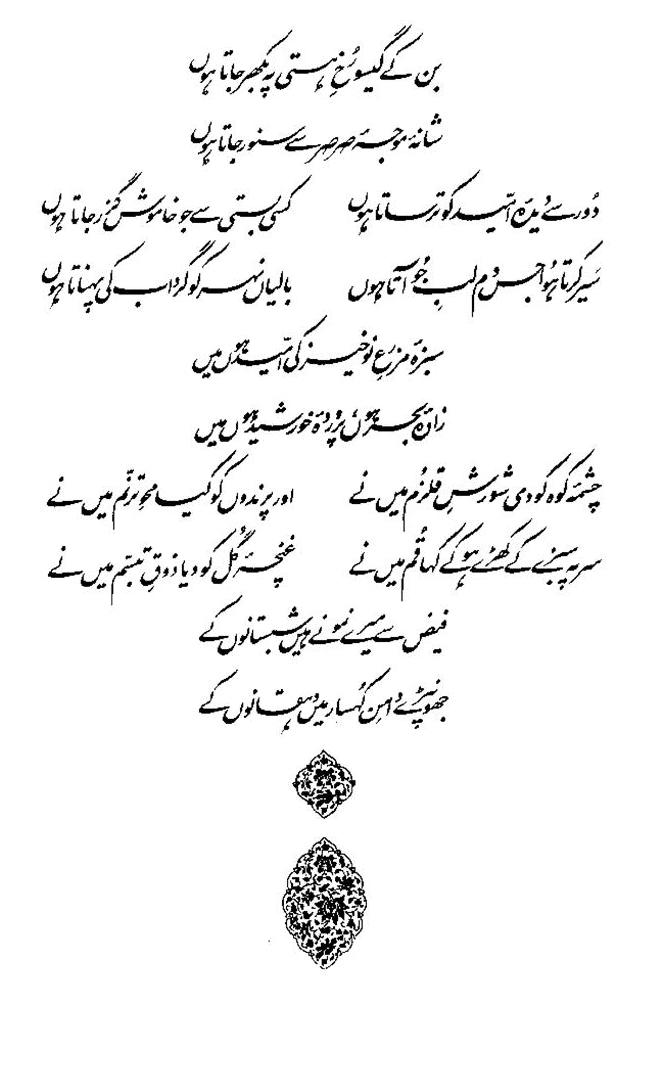 بن کے گیسو رُخِ ہستی پہ بکھر جاتا ہوں
شانۂ موجۂ صرصر سے سنور جاتا ہوں
دُور سے دیدۂ امّید کو ترساتا ہوں کسی بستی سے جو خاموش گزر جاتا ہوں
سَیر کرتا ہُوا جس دم لبِ جُو آتا ہوں بالیاں نہر کو گرداب کی پہناتا ہوں
سبزۂ مزرعِ نوخیز کی امّید ہوں میں
زادۂ بحر ہوں پروردۂ خورشید ہوں میں
چشمۂ کوہ کو دی شورشِ قلزُم میں نے اور پرندوں کو کیا محوِ ترنّم میں نے
سر پہ سبزے کے کھڑے ہو کے کہا قُم میں نے غنچۂ گُل کو دیا ذوقِ تبسّم میں نے
فیض سے میرے نمونے ہیں شبستانوں کے
جھونپڑے دامنِ کُہسار میں دہقانوں کے